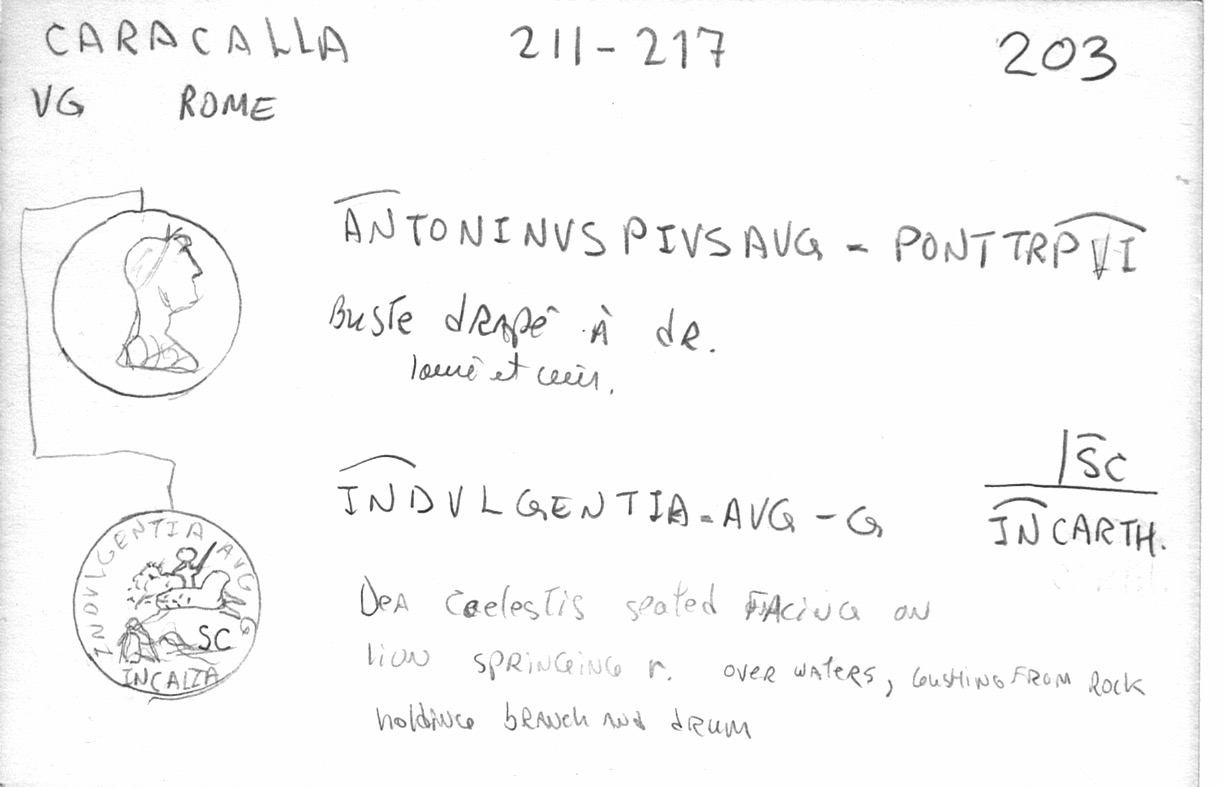 CARACALLA 211-217 203
VG ROME
ANTONINVS PIVS AVG - PONT TRP VI
BUSTE dRAPé À dR.
lauré et cuir.
INDVLGENTIA-AVG-G
SC
IN CARTH.
INDVLGENTIA AVG G
SC
INCALTA
DeA Caelestis seated FACING on
lion SPRINGING r. over waters, GUSHING FROM Rock
holding bRANch AND dRUM